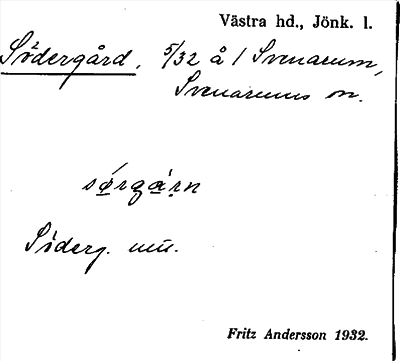 Västra hd., Jönk. l.
Södergård, 5/32 å 1 Svenarum,
Svenarums sn.
sǿrgárn
Söderg. uu.
Fritz Andersson 1932.